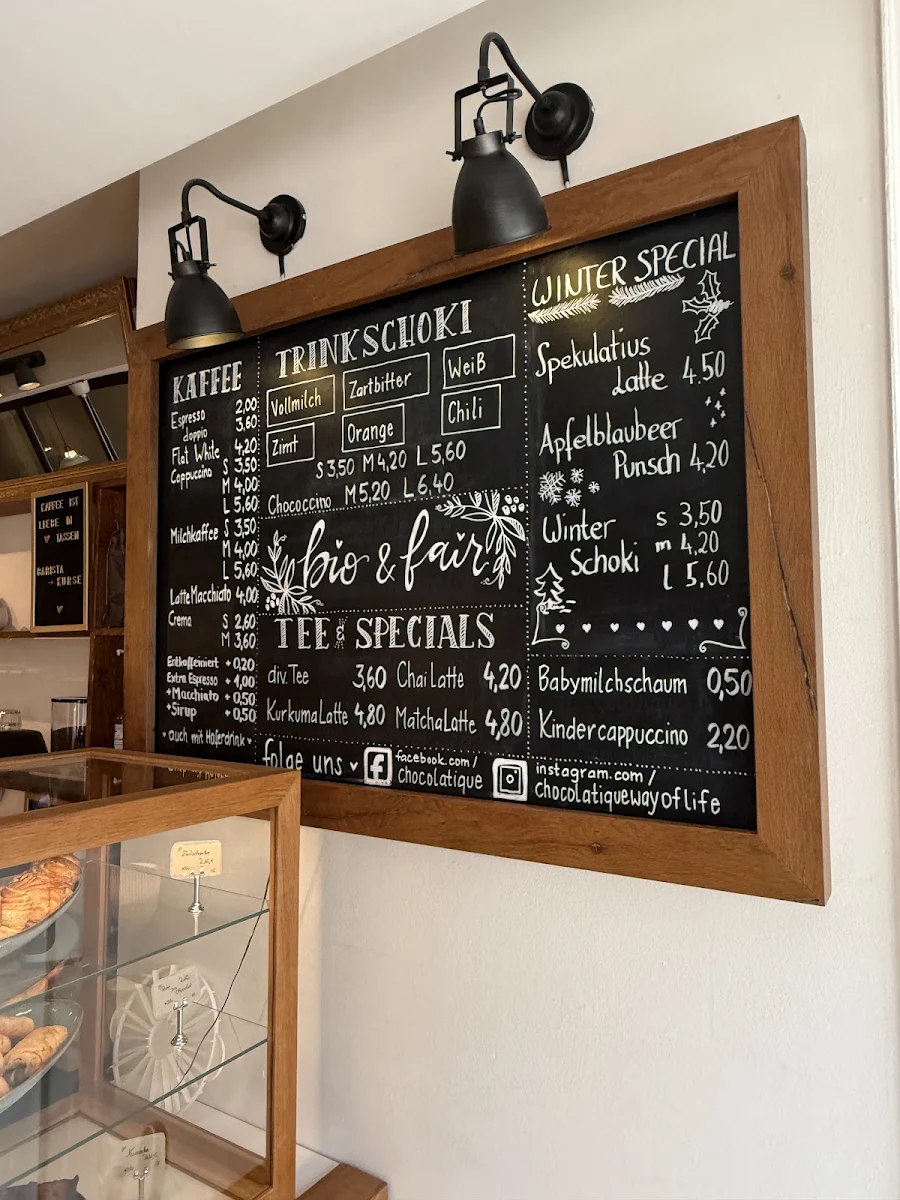 KAFFEE
Espresso 2,00
doppio 3,60
Flat White 4,20
Cappuccino S 3,50
M 4,00
L 5,60
Milchkaffee S 3,50
M 4,00
L 5,60
Latte Macchiato 4,00
Crema S 2,60
M 3,60
Entkoffeiniert +0,20
Extra Espresso +1,00
+Macchiato +0,50
+Sirup +0,50
♥ auch mit Haferdrink ♥
TRINKSCHOKI
Vollmilch Zartbitter Weiß
Zimt Orange Chili
S 3,50 M 4,20 L 5,60
Chococcino M 5,20 L 6,40
bio & fair
TEE & SPECIALS
div. Tee 3,60 Chai Latte 4,20
Kurkuma Latte 4,80 Matcha Latte 4,80
WINTER SPECIAL
Spekulatius
Latte 4.50
Apfelblaubeer
Punsch 4,20
Winter S 3,50
Schoki m 4,20
l 5,60
Babymilchschaum 0,50
Kindercappuccino 2,20
folge uns ♥ facebook.com/
chocolatique
instagram.com/
chocolatiquewayoflife
KAFFEE IST
LIEBE IN
♥ TASSEN
BARISTA
KURSE
♥